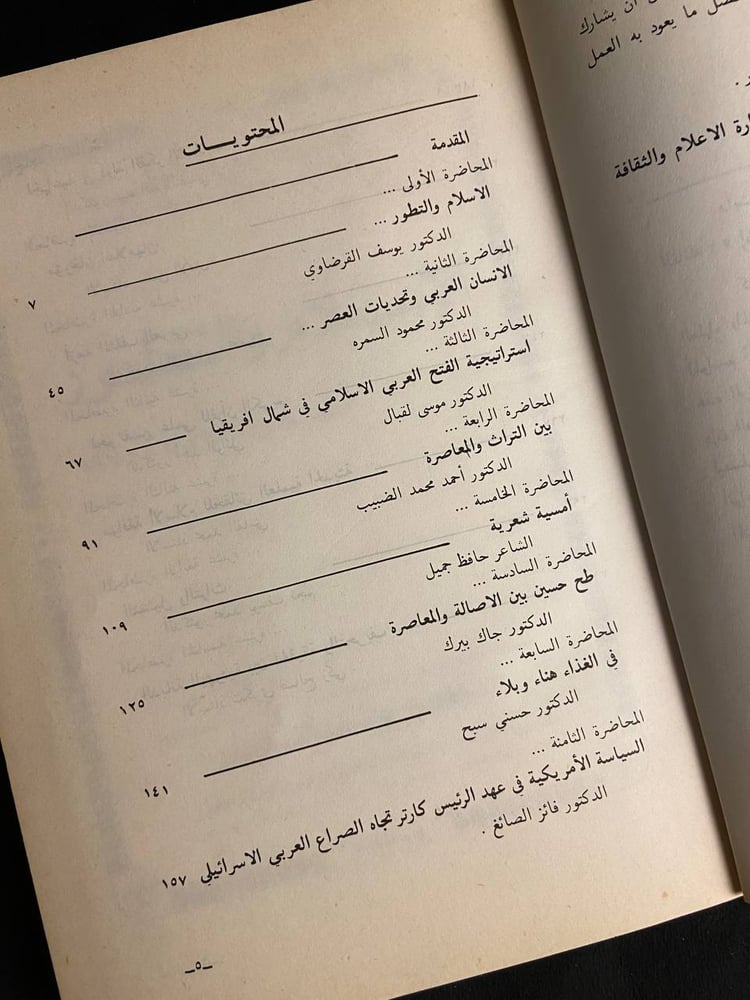 المحتويــــات
المقدمة
المحاضرة الأولى ...
الاسلام والتطور ... ٧
الدكتور يوسف القرضاوي
المحاضرة الثانية ...
الانسان العربي وتحديات العصر ... ٤٥
الدكتور محمود السمره
المحاضرة الثالثة ...
استراتيجية الفتح العربي الاسلامي في شمال افريقيا ٦٧
الدكتور موسى لقبال
المحاضرة الرابعة ...
بين التراث والمعاصرة ٩١
الدكتور أحمد محمد الضبيب
المحاضرة الخامسة ...
أمسية شعرية ١٠٩
الشاعر حافظ جميل
المحاضرة السادسة ...
طح حسين بين الاصالة والمعاصرة ١٢٥
الدكتور جاك بيرك
المحاضرة السابعة ...
في الغذاء هناء وبلاء ١٤١
الدكتور حسني سبح
المحاضرة الثامنة ...
السياسة الأمريكية في عهد الرئيس كارتر تجاه الصراع العربي الاسرائيلي ١٥٧
الدكتور فائز الصائغ .
ـ٥ـ
أن يشارك
ما يعود به العمل
الاعلام والثقافة